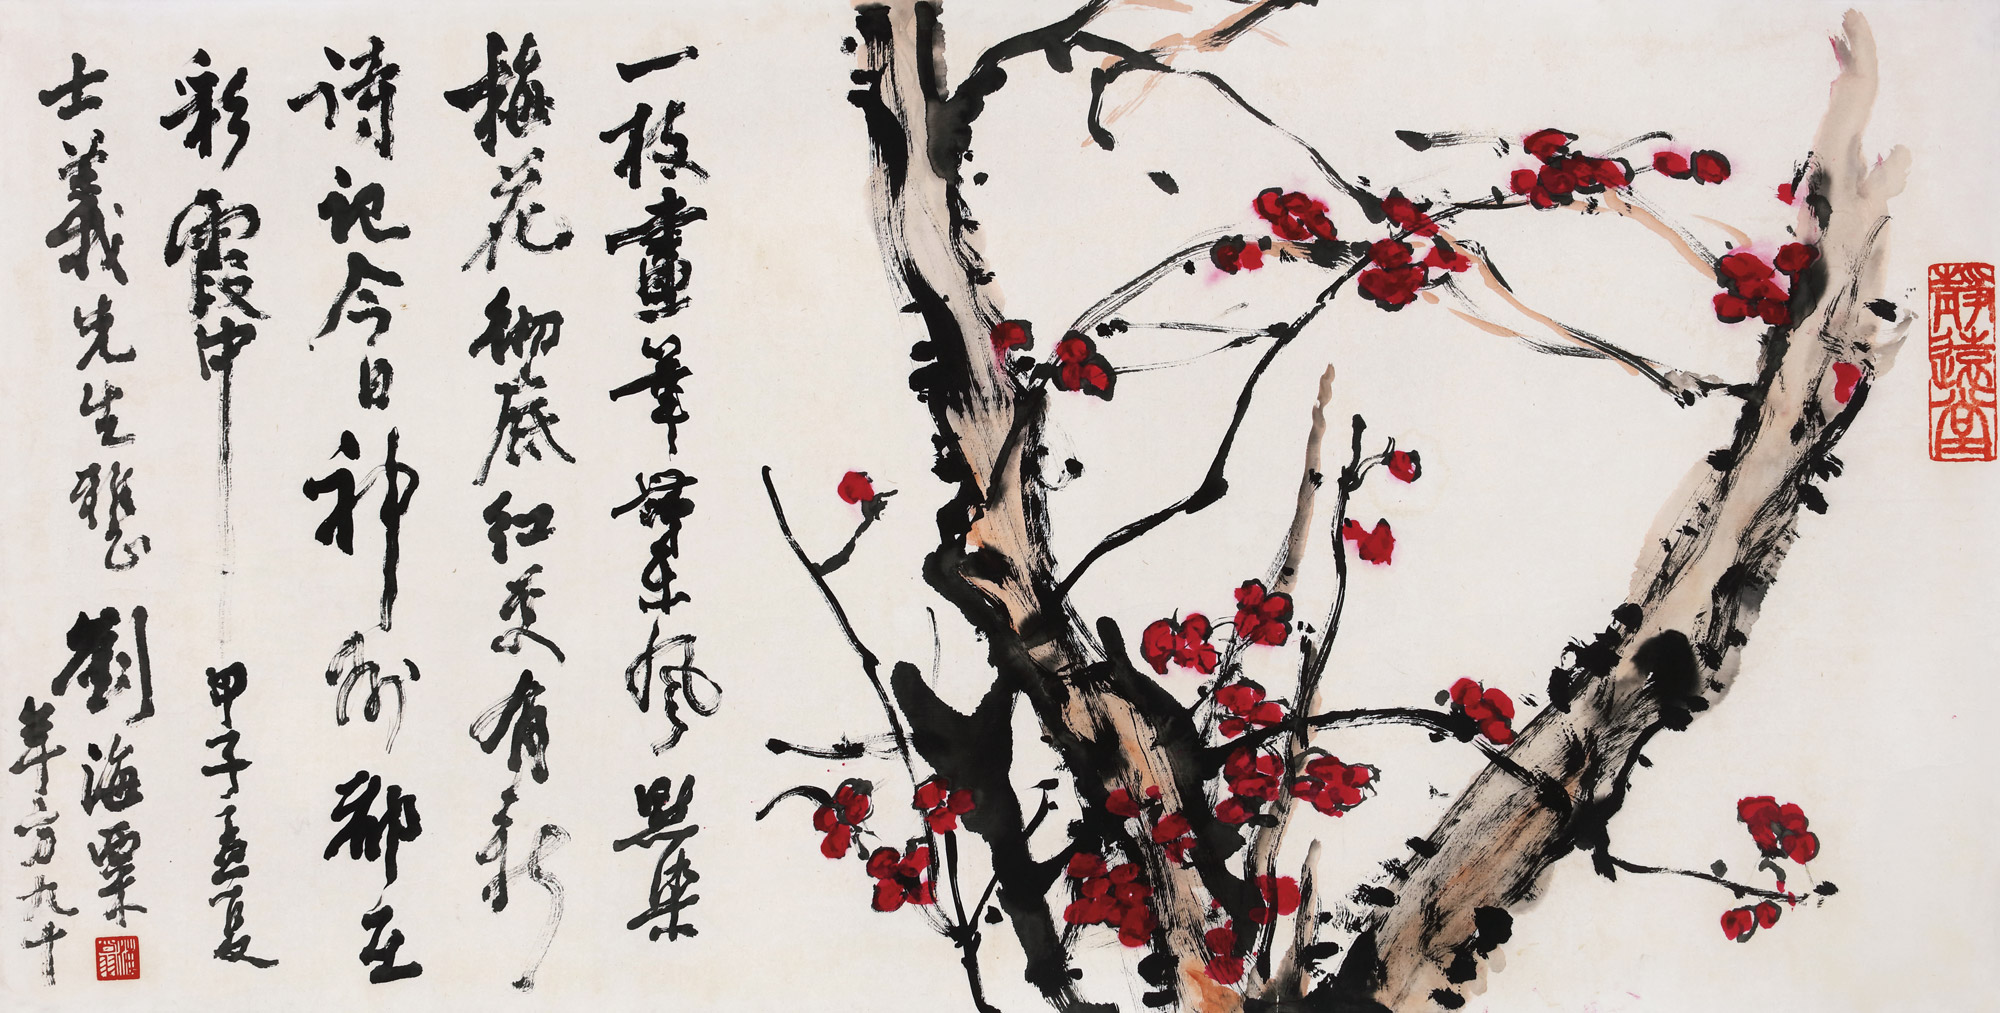 一枝畫筆帶東風點染
梅花徹底紅更有新
詩記今日神州都在
彩霞中
甲子孟夏
士義先生雅正
劉海粟
年方九十
靜遠堂